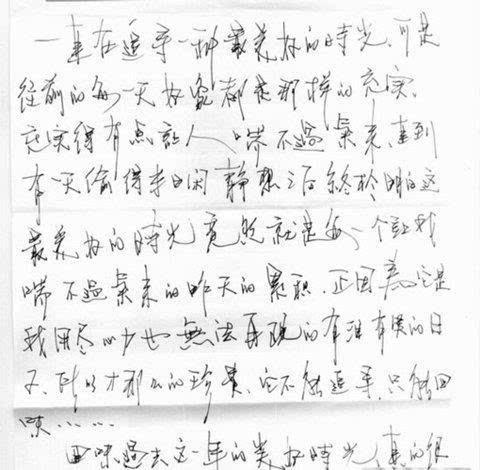 一直在追寻一种最美好的時光,可是
從前的每一天好像都是那样的充实,
充实得有点让人喘不過氣来,直到
有一天偷得半日闲静想之后终於明白这
最美好的時光竟然就是每一个让我
喘不過氣来的昨天的累积.正因為它是
我用尽心力也無法再現的有泪有笑的日
子,所以才那么的珍贵,它不能追寻,只能回
味……
回味過去这一年的美好時光,真的很